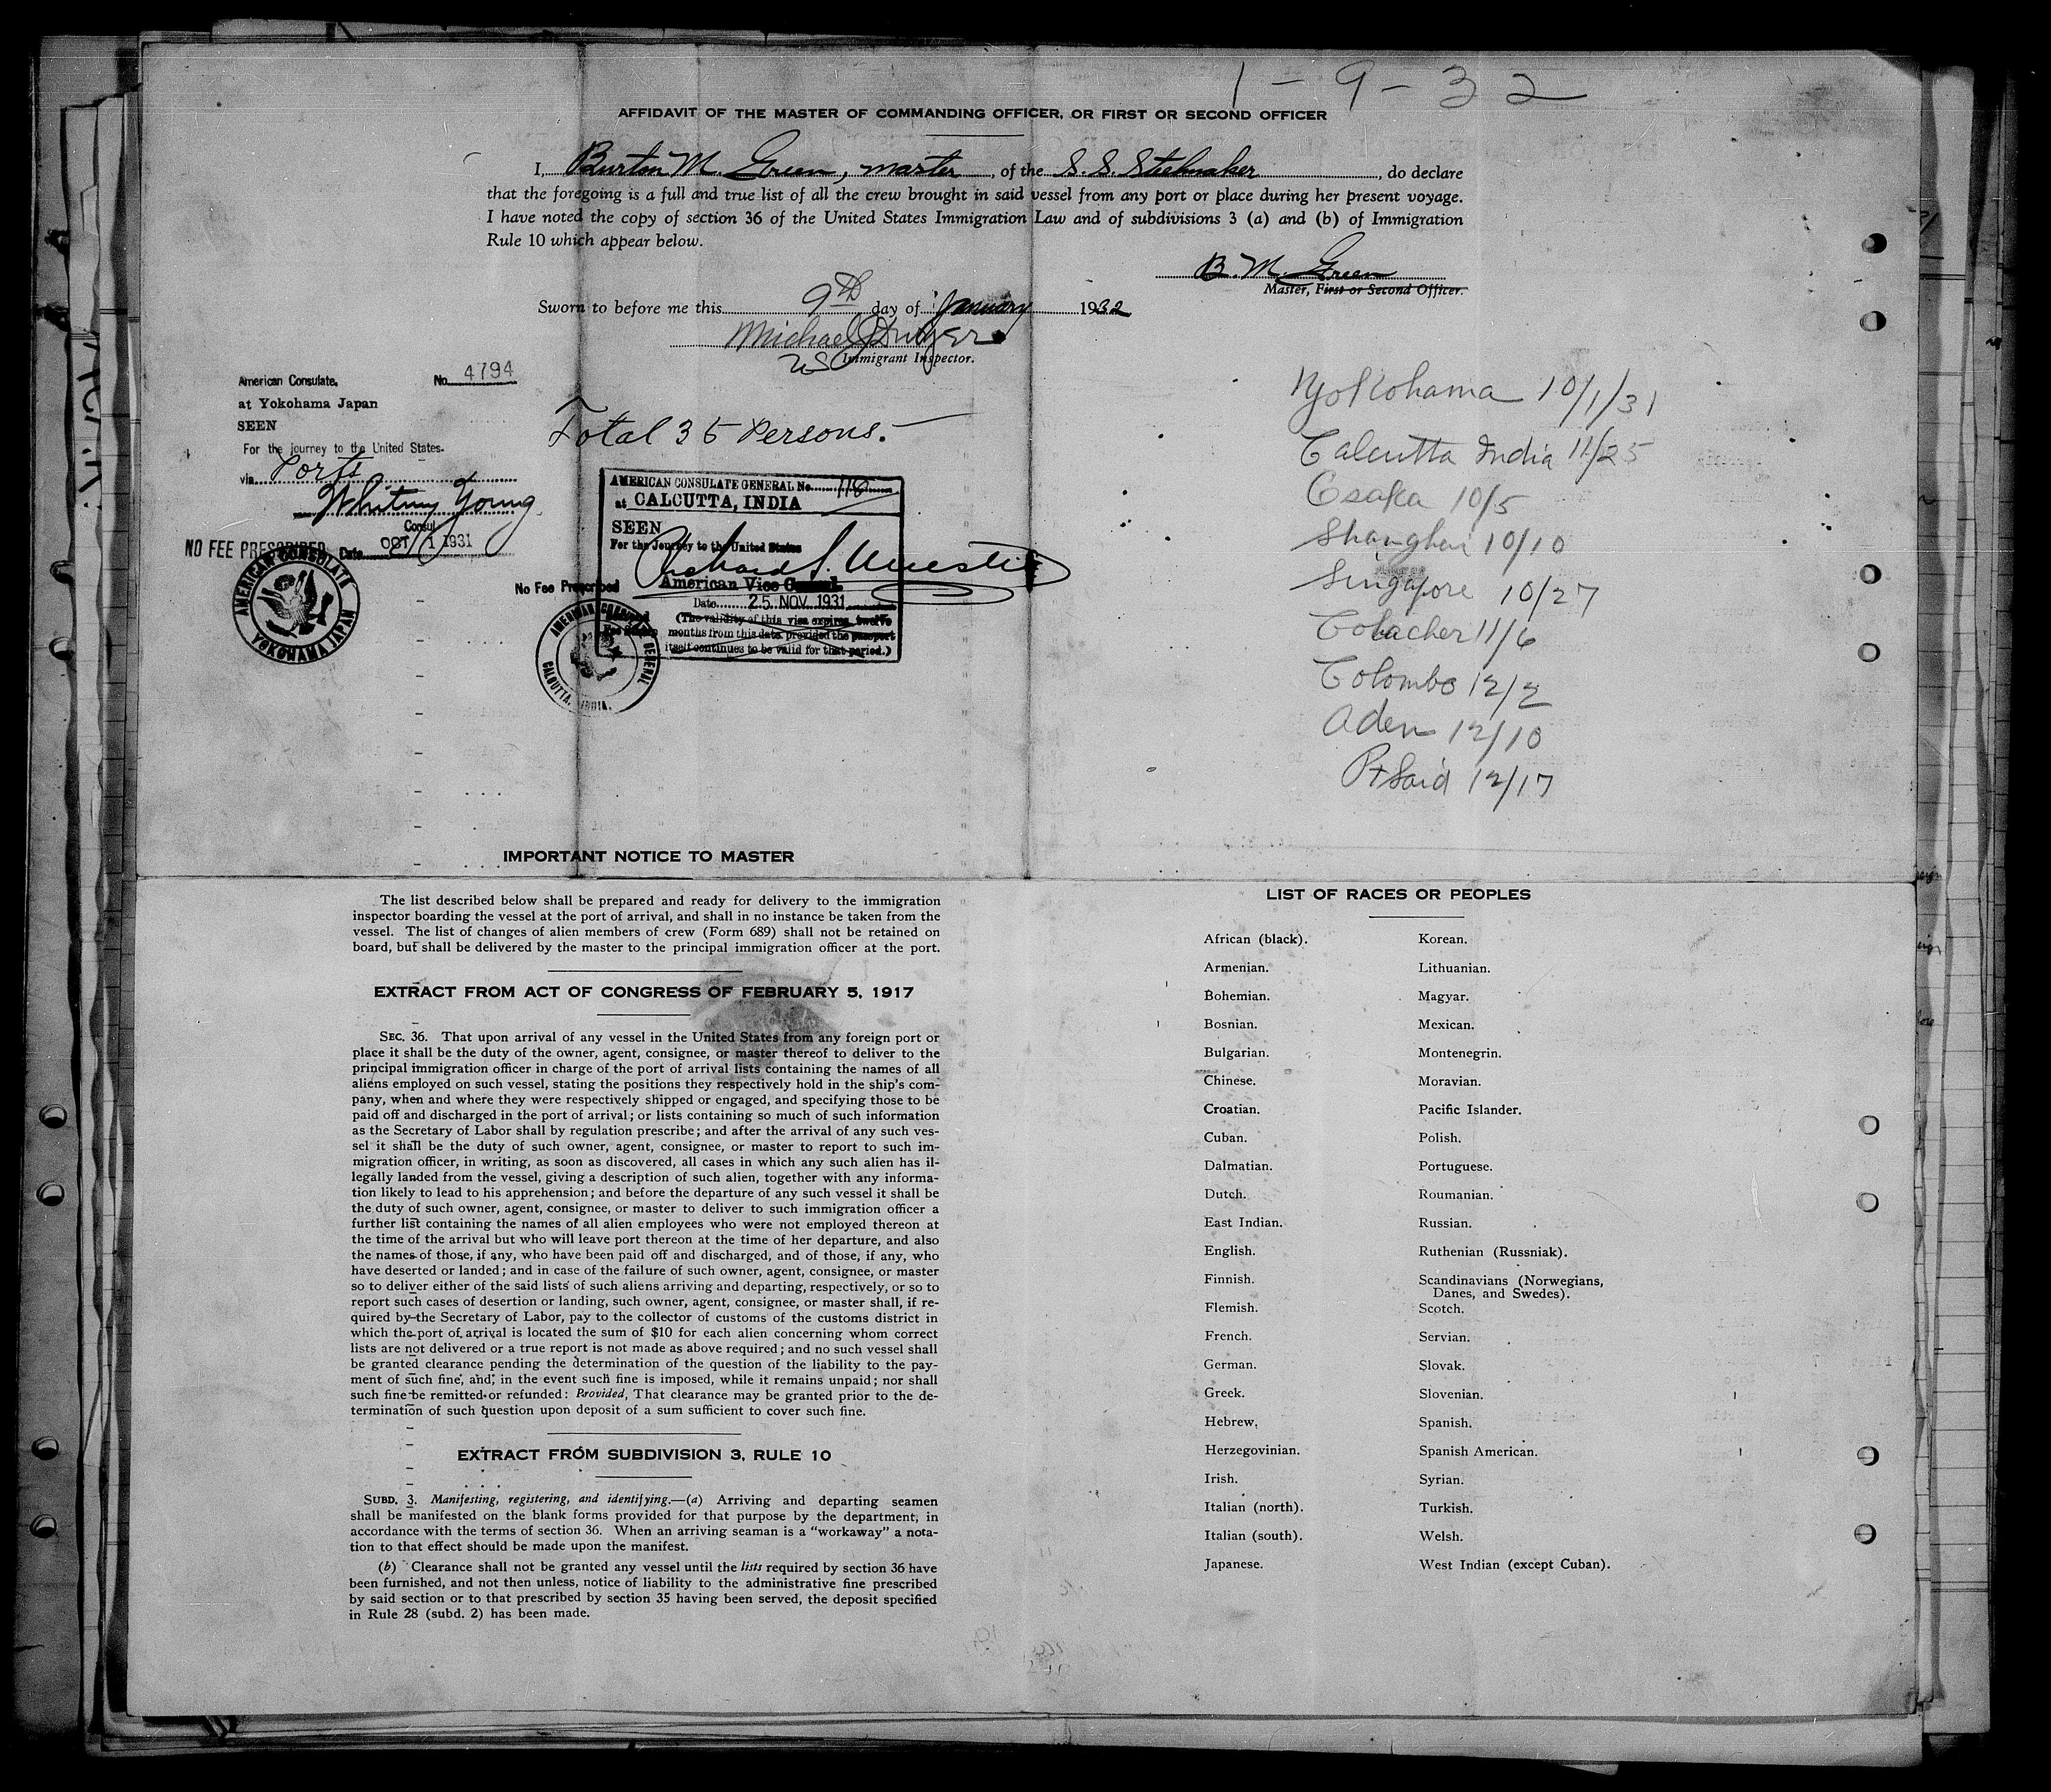 1-9-32
AFFIDAVIT OF THE MASTER OF COMMANDING OFFICER, OR FIRST OR SECOND OFFICER
I, Burton M. Green, master, of the S. S. Steelmaker, do declare
that the foregoing is a full and true list of all the crew brought in said vessel from any port or place during her present voyage.
I have noted the copy of section 36 of the United States Immigration Law and of subdivisions 3 (a) and (b) of Immigration
Rule 10 which appear below.
B. M. Green
Master, First or Second Officer.
Sworn to before me this 9th day of January 1932
Michael
Immigrant Inspector.
American Consulate. No. 4794
at Yokohama Japan
SEEN
For the journey to the United States.
via Ports
Whitney Young
Consul
NO FEE PRESCRIBED Date OCT 1 1931
AMERICAN CONSULATE
YOKOHAMA JAPAN
Total 35 Persons.
AMERICAN CONSULATE GENERAL No. 118
at CALCUTTA, INDIA
SEEN
For the Journey to the United States
Richard S.
No Fee Prescribed American Vice Consul.
Date 25 NOV 1931
(The validity of this visa expires twelve
months from this date provided the passport
itself continues to be valid for that period.)
AMERICAN CONSULATE GENERAL
CALCUTTA, INDIA.
Yokohama 10/1/31
Calcutta India 11/25
Osaka 10/5
Shanghai 10/10
Singapore 10/27
11/6
Colombo 12/2
Aden 12/10
Pt Said 12/17
IMPORTANT NOTICE TO MASTER
The list described below shall be prepared and ready for delivery to the immigration
inspector boarding the vessel at the port of arrival, and shall in no instance be taken from the
vessel. The list of changes of alien members of crew (Form 689) shall not be retained on
board, but shall be delivered by the master to the principal immigration officer at the port.
EXTRACT FROM ACT OF CONGRESS OF FEBRUARY 5, 1917
SEC. 36. That upon arrival of any vessel in the United States from any foreign port or
place it shall be the duty of the owner, agent, consignee, or master thereof to deliver to the
principal immigration officer in charge of the port of arrival lists containing the names of all
aliens employed on such vessel, stating the positions they respectively hold in the ship's com-
pany, when and where they were respectively shipped or engaged, and specifying those to be
paid off and discharged in the port of arrival; or lists containing so much of such information
as the Secretary of Labor shall by regulation prescribe; and after the arrival of any such ves-
sel it shall be the duty of such owner, agent, consignee, or master to report to such im-
migration officer, in writing, as soon as discovered, all cases in which any such alien has il-
legally landed from the vessel, giving a description of such alien, together with any informa-
tion likely to lead to his apprehension; and before the departure of any such vessel it shall be
the duty of such owner, agent, consignee, or master to deliver to such immigration officer a
further list containing the names of all alien employees who were not employed thereon at
the time of the arrival but who will leave port thereon at the time of her departure, and also
the names of those, if any, who have been paid off and discharged, and of those, if any, who
have deserted or landed; and in case of the failure of such owner, agent, consignee, or master
so to deliver either of the said lists of such aliens arriving and departing, respectively, or so to
report such cases of desertion or landing, such owner, agent, consignee, or master shall, if re-
quired by the Secretary of Labor, pay to the collector of customs of the customs district in
which the port of arrival is located the sum of $10 for each alien concerning whom correct
lists are not delivered or a true report is not made as above required; and no such vessel shall
be granted clearance pending the determination of the question of the liability to the pay-
ment of such fine, and, in the event such fine is imposed, while it remains unpaid; nor shall
such fine be remitted or refunded: Provided, That clearance may be granted prior to the de-
termination of such question upon deposit of a sum sufficient to cover such fine.
EXTRACT FROM SUBDIVISION 3, RULE 10
SUBD. 3. Manifesting, registering, and identifying.—(a) Arriving and departing seamen
shall be manifested on the blank forms provided for that purpose by the department, in
accordance with the terms of section 36. When an arriving seaman is a "workaway" a nota-
tion to that effect should be made upon the manifest.
(b) Clearance shall not be granted any vessel until the lists required by section 36 have
been furnished, and not then unless, notice of liability to the administrative fine prescribed
by said section or to that prescribed by section 35 having been served, the deposit specified
in Rule 28 (subd. 2) has been made.
LIST OF RACES OR PEOPLES
African (black).
Armenian.
Bohemian.
Bosnian.
Bulgarian.
Chinese.
Croatian.
Cuban.
Dalmatian.
Dutch.
East Indian.
English.
Finnish.
Flemish.
French.
German.
Greek.
Hebrew.
Herzegovinian.
Irish.
Italian (north).
Italian (south).
Japanese.
Korean.
Lithuanian.
Magyar.
Mexican.
Montenegrin.
Moravian.
Pacific Islander.
Polish.
Portuguese.
Roumanian.
Russian.
Ruthenian (Russniak).
Scandinavians (Norwegians,
Danes, and Swedes).
Scotch.
Servian.
Slovak.
Slovenian.
Spanish.
Spanish American.
Syrian.
Turkish.
Welsh.
West Indian (except Cuban).